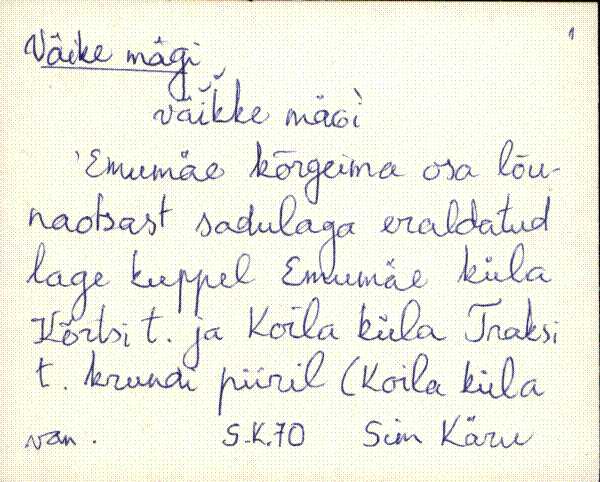 1
Väike mägi
väikke mägì
'Emumäe kõrgeima osa lõu-
naotsast sadulaga eraldatud
lage kuppel Emumäe küla
Kõrtsi t. ja Koila küla Traksi
t. krundi piiril (Koila küla
van. S.K.70 Sim Käru